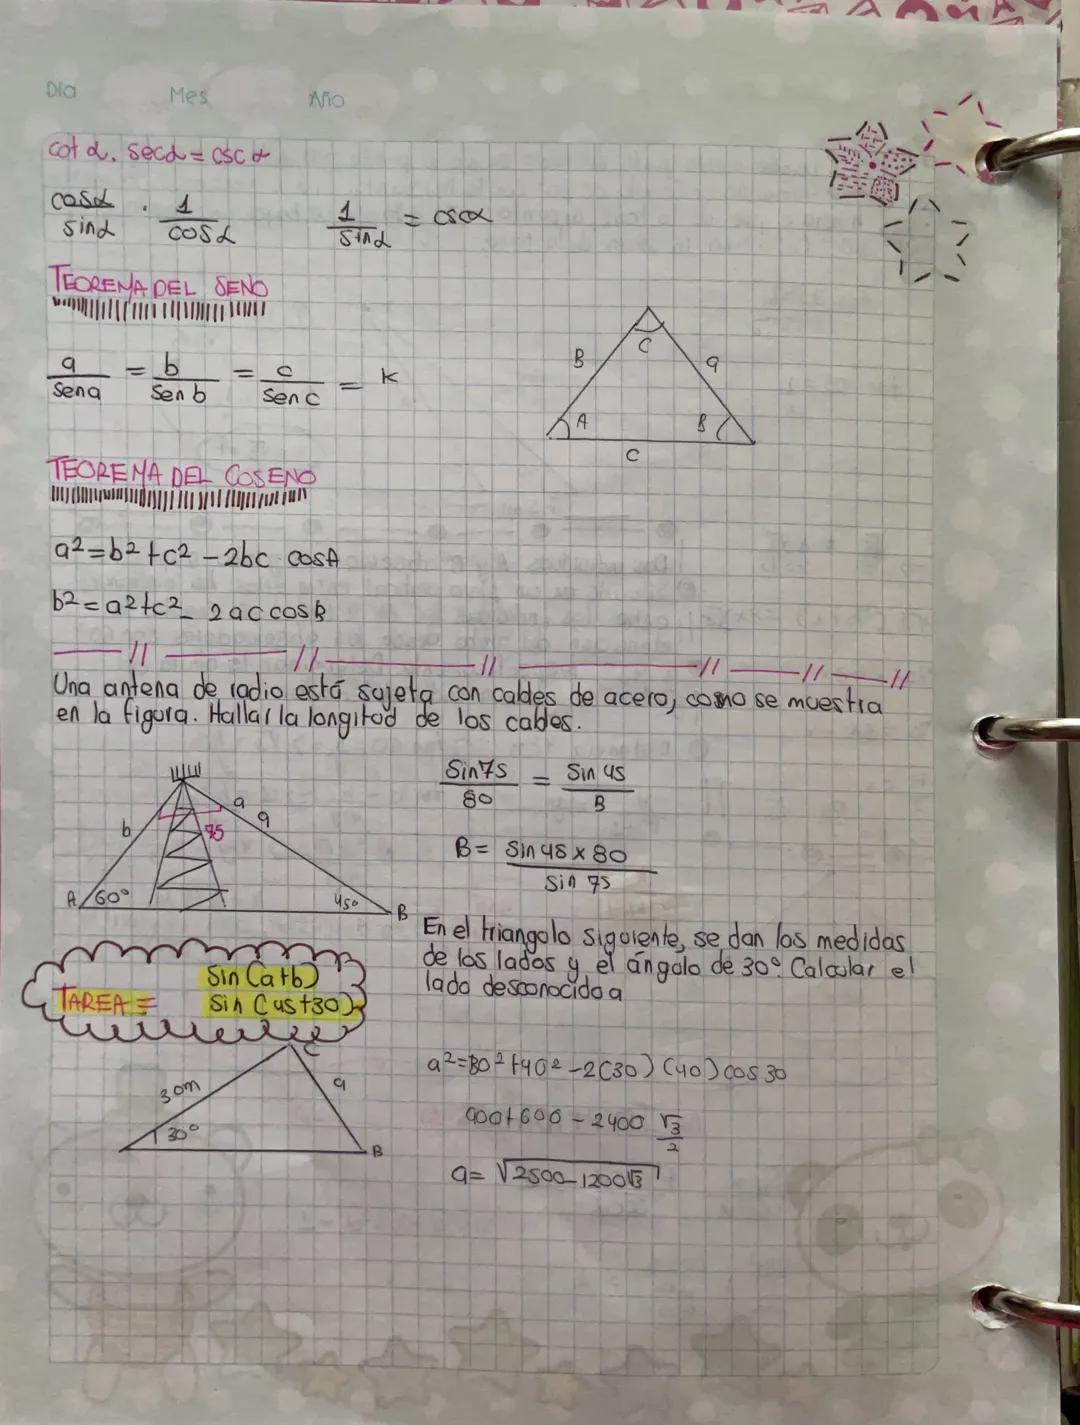 Dia Mes Año
cot α. secα = csc α
cosα/sinα . 1/cosα 1/sinα = cscα
TEOREMA DEL SENO
a/sena = b/sen b = c/sen c = K
B C a
A B
C
TEOREMA DEL COSENO
a²=b²+c² - 2bc cosA
b²=a²+c² - 2ac cosB
Una antena de radio está sujeta con cables de acero, como se muestra
en la figura. Hallar la longitud de los cables.
Sin75/80 = Sin 45/B
b 75 a a
B = Sin 45 x 80/Sin 75
A 60° 45° B
En el triangolo siguiente, se dan las medidas
de los lados y el ángulo de 30°. Calcular el
lado desconocido a
Sin (a+b)
TAREA = Sin (45+30)
C
a²=30²+40²-2(30) (40) cos 30
30m a
900+600 - 2400 √3/2
30° B
a= √2500-1200√3